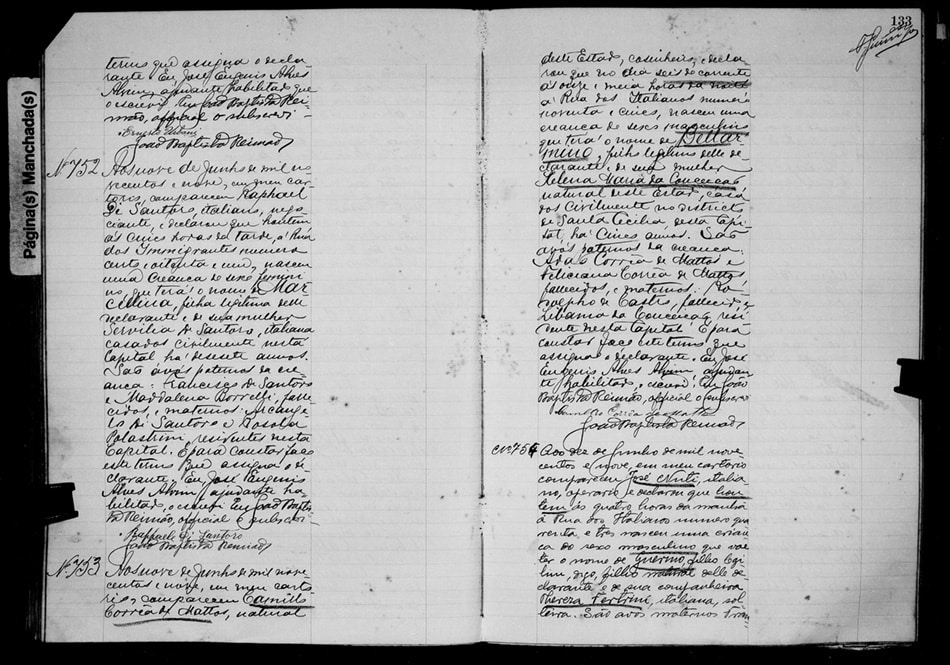 Página(s) Manchada(s)
termo que assigna o decla-
rante. Eu José Eugenio Alves
Alvim, ajudante habilitado que
o escrevi. Eu João Baptista Rei-
mão, official o subscrevi.
Ernesto
João Baptista Reimão
Nº 752
Aos nove de Junho de mil no-
vecentos e nove, em meu car-
torio, compareceu Raphael
Di Santoro, italiano, nego-
ciante, e declarou que hontem
ás cinco horas da tarde, á Rua
dos Immigrantes numero
cento e oitenta e um, nasceu
uma creança de sexo femini-
no, que terá o nome de Mar-
cellina, filha legitima delle
declarante e de sua mulher
Servilia di Santoro, italiana
casados civilmente nesta
Capital ha desete annos.
São avós paternos da cre-
ança: Francisco di Santoro
e Maddalena Borrelli, falle-
cidos, e maternos: Arcange-
lo di Santoro e Rosalia
Polastrini, residentes nesta
Capital. E para constar faço
este termo que assigna o de-
clarante. Eu, José Eugenio
Alves Alvim, ajudante ha-
bilitado, o escrevi. Eu João Baptis-
ta Reimão, official o subscrevi.
Raffaele Di Santoro
João Baptista Reimão
Nº 753
Aos nove de Junho de mil nove
centos e nove, em meu carto-
rio, compareceu Camillo
Corrêa de Mattos, natural
133
deste Estado, cosinheiro, e decla-
rou que no dia seis do corrente
ás onze e meia horas da noite
á Rua dos Italianos numero
noventa e cinco, nasceu uma
creança de sexo masculino
que terá o nome de Bellar-
mino, filho legitimo delle de-
clarante e de sua mulher
Helena Maria da Conceição
natural deste Estado, casa-
dos civilmente no districto
de Santa Cecilia desta Capi-
tal, ha cinco annos. São
avós paternos da creança
Adão Corrêa de Mattos e
Feliciana Corrêa de Mattos
fallecidos, e maternos: Ro-
dolpho de Castro, fallecido,
Libania da Conceição, resi-
dente nesta Capital. E para
constar faço este termo que
assigna o declarante. Eu, José
Eugenio Alves Alvim, ajudan-
te habilitado, o escrevi. Eu João
Baptista Reimão, official o subscrevi
Corrêa de Mattos
João Baptista Reimão
Nº 754
Aos dez de Junho de mil nove
centos e nove, em meu cartorio
compareceu José Conti, italia-
no, operario e declarou que hon-
tem ás quatro horas da manhã
á Rua dos Italianos numero qua-
renta e tres nasceu uma crian-
ça do sexo masculino que vae
ter o nome de Guerino, filho legi-
timo, digo, filho natural delle de-
clarante e de sua companheira
Thereza Fertrini, italiana, sol-
teira. São avós maternos Fran-